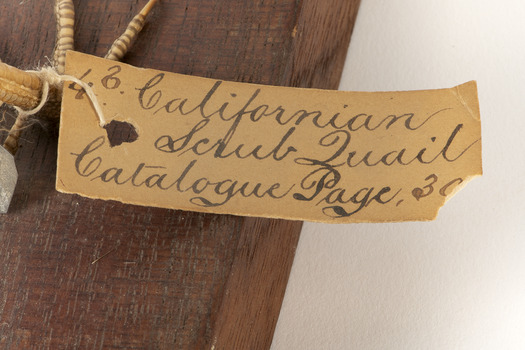 43. Californian
Scrub Quail
Catalogue Page, 30